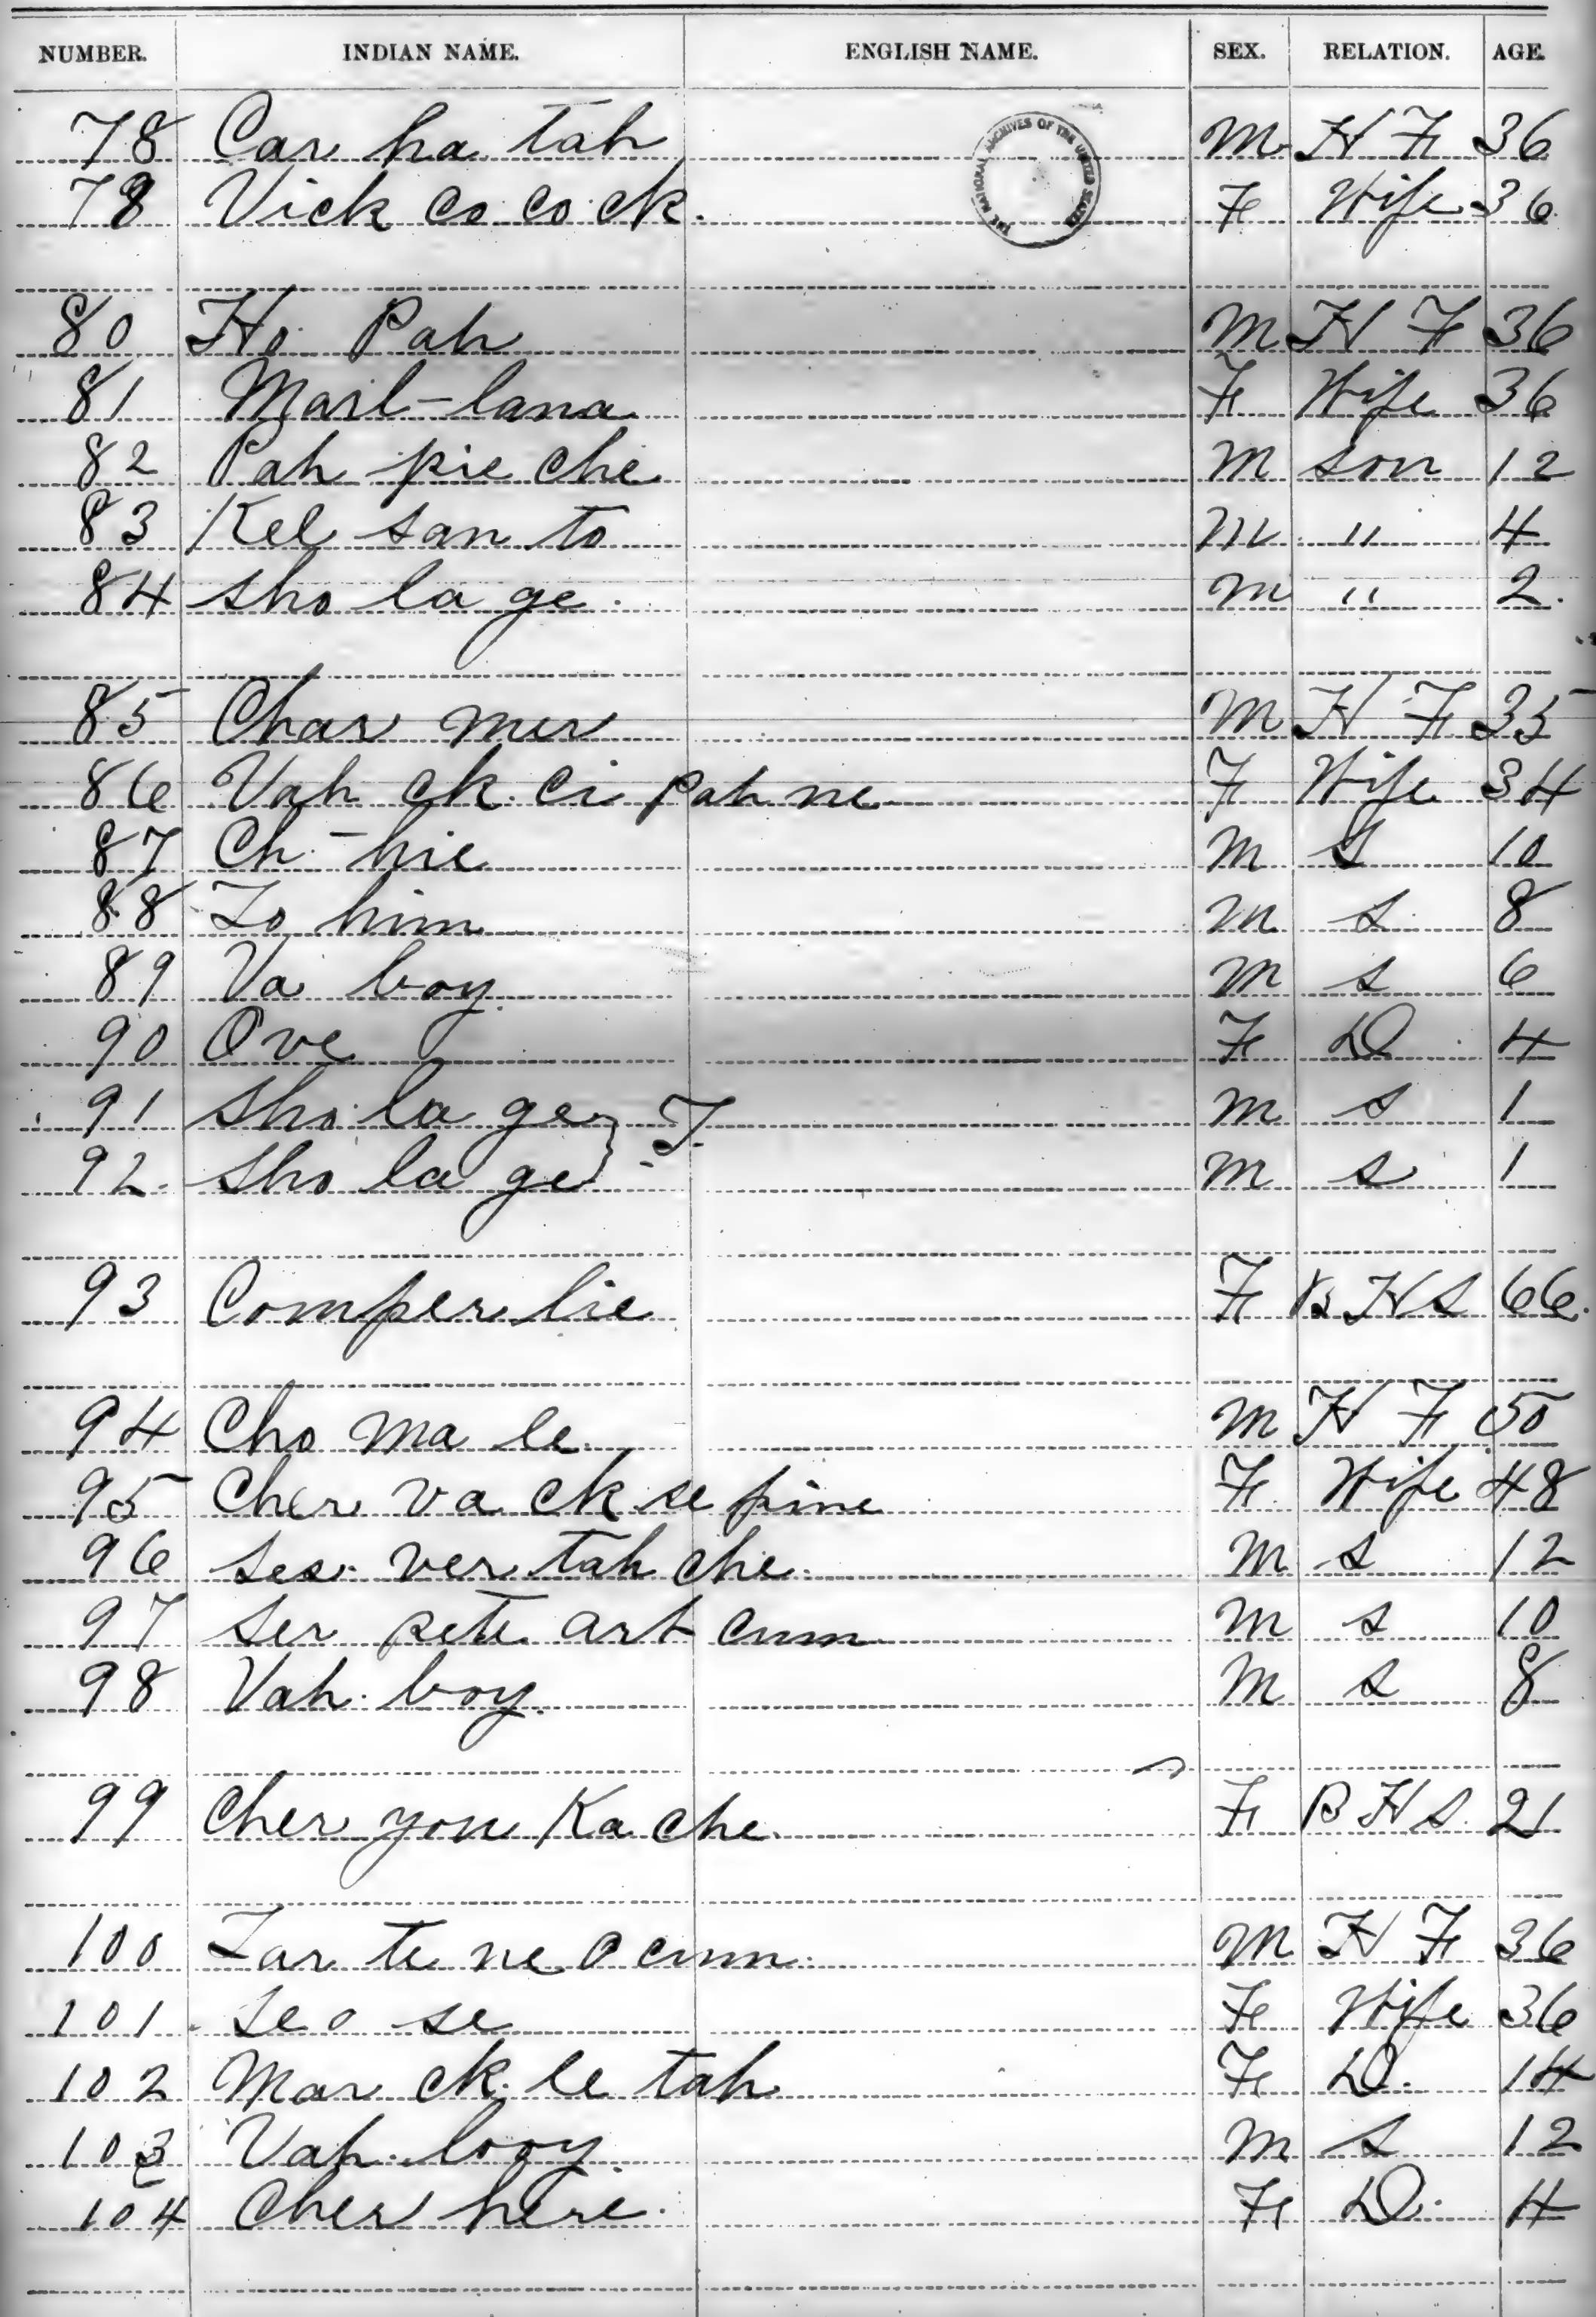 NUMBER. INDIAN NAME. ENGLISH NAME. SEX. RELATION. AGE.
THE NATIONAL ARCHIVES OF THE UNITED STATES
78 Car ha tah M H F 36
78 Vick co co ck. F Wife 36
80 Ho Pah M H F 36
81 Marl-lana F Wife 36
82 Pah pie che M Son 12
83 Kel san to M " 4
84 Sho la ge M " 2.
85 Char mer M H F 35
86 Vah ck ci pah ne F Wife 34
87 Ch-hie M S 10
88 To him M S 8
89 Va boy M S 6
90 Ove F D 4
91 Sho la ge } T. M S 1
92 Sho la ge M S 1
93 Comper lie F B H S 66.
94 Cho ma le M H F 50
95 Cher va ck se pine F Wife 48
96 Ses ver tah che M S 12
97 Ser pete art cum M S 10
98 Vah boy M S 8
99 Cher you Ka che F B H S 21
100 Tar te ne o cum M H F 36
101 Le o se F Wife 36
102 Mar ck le tah F D. 14
103 Vah boy M S 12
104 Cher here F D. 4